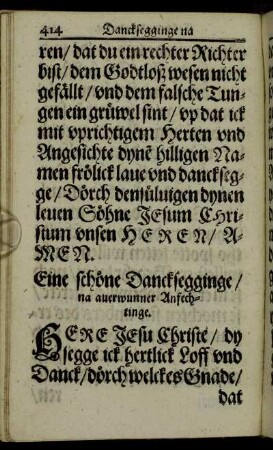 414 Dancksegginge na
ren/ dat du ein rechter Richter
bist/ dem Godtloß wesen nicht
gefällt/ vnd dem falsche Tun-
gen ein grüwel sint/ vp dat ick
mit vprichtigem Herten vnd
Angesichte dynē hilligen Na-
men frölick laue vnd danckseg-
ge/ Dörch densüluigen dynen
leuen Söhne JEsum CHri-
stum vnsen HEREN/ A-
MEN.
Eine schöne Dancksegginge/
na auerwunner Anfech-
tinge.
HERE JEsu Christe/ dy
segge ick hertlick Loff vnd
Danck/ dörch welckes Gnade/
dat